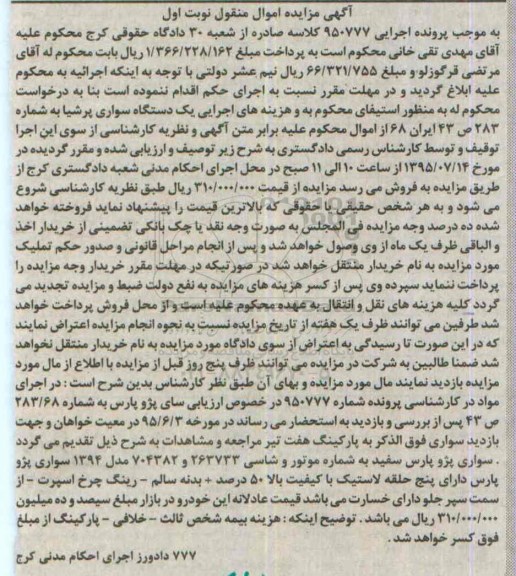 آگهی مزایده اموال منقول نوبت اول
به موجب پرونده اجرایی ۹۵۰۷۷۷ کلاسه صادره از شعبه ۳۰ دادگاه حقوقی کرج محکوم علیه
آقای مهدی تقی خانی محکوم است به پرداخت مبلغ ۱/۳۶۶/۲۲۸/۱۶۲ ریال بابت محکوم له آقای
مرتضی قرگوزلو و مبلغ ۶۶/۳۲۱/۷۵۵ ریال نیم عشر دولتی با توجه به اینکه اجرائیه به محکوم
علیه ابلاغ گردید و در مهلت مقرر نسبت به اجرای حکم اقدام ننموده است بنا به درخواست
محکوم له به منظور استیفای محکوم به و هزینه های اجرایی یک دستگاه سواری پرشیا به شماره
۲۸۳ ص ۴۳ ایران ۶۸ از اموال محکوم علیه برابر متن آگهی و نظریه کارشناسی از سوی این اجرا
توقیف و توسط کارشناس رسمی دادگستری به شرح زیر توصیف و ارزیابی شده و مقرر گردیده در
مورخ ۱۳۹۵/۰۷/۱۴ از ساعت ۱۰ الی ۱۱ صبح در محل اجرای احکام مدنی شعبه دادگستری کرج از
طریق مزایده به فروش می رسد مزایده از قیمت ۳۱۰/۰۰۰/۰۰۰ ریال طبق نظریه کارشناسی شروع
می شود و به هر شخص حقیقی یا حقوقی که بالاترین قیمت را پیشنهاد نماید فروخته خواهد
شده ده درصد وجه مزایده فی المجلس به صورت وجه نقد یا چک بانکی تضمینی از خریدار اخذ
و الباقی ظرف یک ماه از وی وصول خواهد شد و پس از انجام مراحل قانونی و صدور حکم تملیک
مورد مزایده به نام خریدار منتقل خواهد شد در صورتیکه در مهلت مقرر خریدار وجه مزایده را
پرداخت ننماید سپرده وی پس از کسر هزینه های مزایده به نفع دولت ضبط و مزایده تجدید می
گردد کلیه هزینه های نقل و انتقال به عهده محکوم علیه است و از محل فروش پرداخت خواهد
شد طرفین می توانند ظرف یک هفته از تاریخ مزایده نسبت به نحوه انجام مزایده اعتراض نمایند
که در این صورت تا رسیدگی به اعتراض از سوی دادگاه مورد مزایده به نام خریدار منتقل نخواهد
شد ضمنا طالبین به شرکت در مزایده می توانند ظرف پنج روز قبل از مزایده با اطلاع از مال مورد
مزایده بازدید نمایند مال مورد مزایده و بهای آن طبق نظر کارشناس بدین شرح است : در اجرای
مواد در کارشناسی پرونده شماره ۹۵۰۷۷۷ در خصوص ارزیابی سای پژو پارس به شماره ۲۸۳/۶۸
ص ۴۳ پس از بررسی و بازدید به استحضار می رساند در مورخه ۹۵/۶/۳ در معیت خواهان و جهت
بازدید سواری فوق الذکر به پارکینگ هفت تیر مراجعه و مشاهدات به شرح ذیل تقدیم می گردد
. سواری پژو پارس سفید به شماره موتور و شاسی ۲۶۳۷۳۳ و ۷۰۴۳۸۲ مدل ۱۳۹۴ سواری پژو
پارس دارای پنج حلقه لاستیک با کیفیت بالا ۵۰ درصد + بدنه سالم - رینگ چرخ اسپرت - از
سمت سپر جلو دارای خسارت می باشد قیمت عادلانه این خودرو در بازار مبلغ سیصد و ده میلیون
۳۱۰/۰۰۰/۰۰۰ ریال می باشد . توضیح اینکه : هزینه بیمه شخص ثالث - خلافی - پارکینگ از مبلغ
فوق کسر خواهد شد .
۷۷۷ دادورز اجرای احکام مدنی کرج